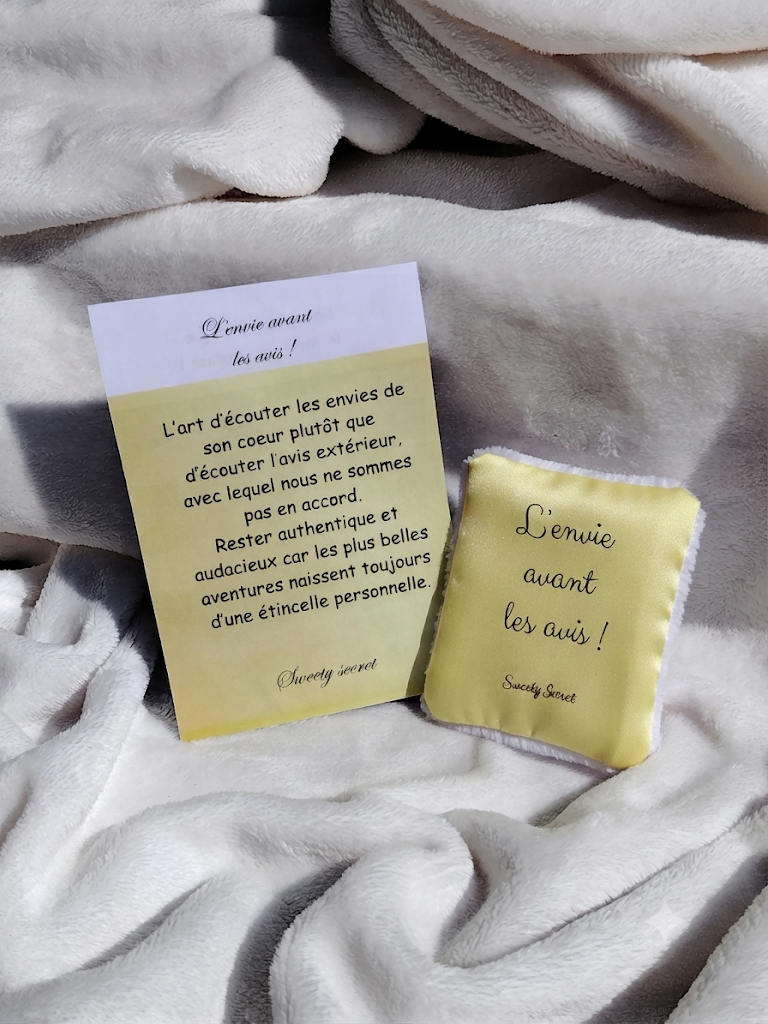 L'envie avant
les avis !
L'art d'écouter les envies de
son coeur plutôt que
d'écouter l'avis extérieur,
avec lequel nous ne sommes
pas en accord.
Rester authentique et
audacieux car les plus belles
aventures naissent toujours
d'une étincelle personnelle.
Sweety secret
L'envie
avant
les avis !
Sweety Secret